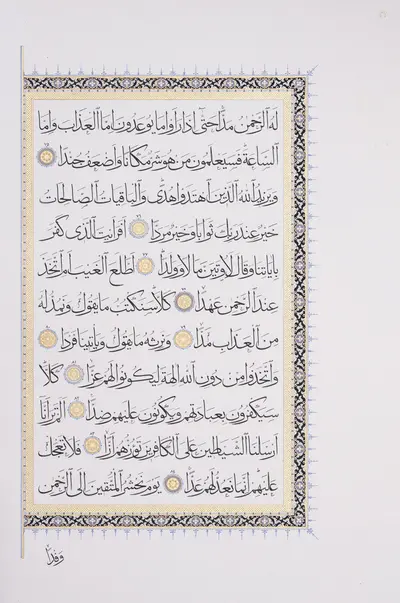 له الرحمن مدا حتى اذا راوا ما يوعدون اما العذاب واما
الساعة فسيعلمون من هو شر مكانا واضعف جندا
ويزيد الله الذين اهتدوا هدى والباقيات الصالحات
خير عند ربك ثوابا وخير مردا افرايت الذي كفر
باياتنا وقال لاوتين مالا وولدا اطلع الغيب ام اتخذ
عند الرحمن عهدا كلا سنكتب ما يقول ونمد له
من العذاب مدا ونرثه ما يقول وياتينا فردا
واتخذوا من دون الله الهة ليكونوا لهم عزا كلا
سيكفرون بعبادتهم ويكونون عليهم ضدا الم تر انا
ارسلنا الشياطين على الكافرين تؤزهم ازا فلا تعجل
عليهم انما نعد لهم عدا يوم نحشر المتقين الى الرحمن
وفدا